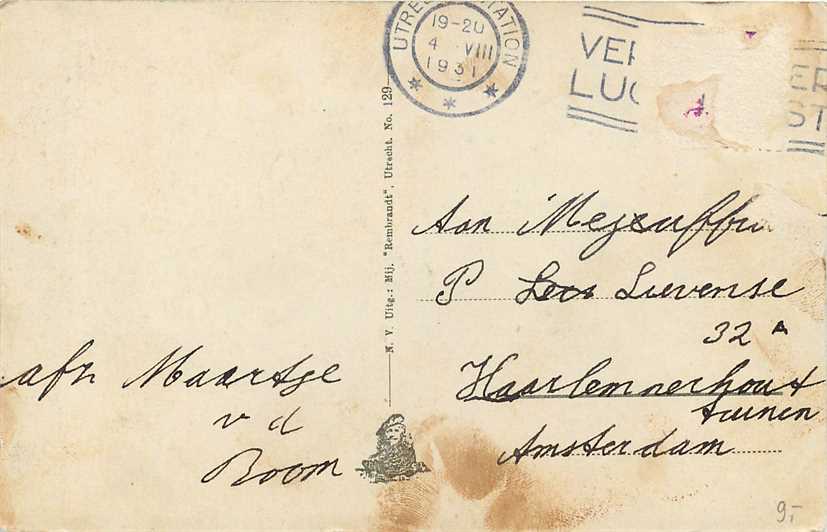 UTRECHT STATION
19-20
4 VIII
1931
VER
LUC
ER
ST
N. V. Uitg.: Mij. "Rembrandt", Utrecht. No. 129
Aan Mejuffr
P Lievense
32 A
Haarlemmerhout
tuinen
Amsterdam
afz Maartje
v d
Boom
9,-